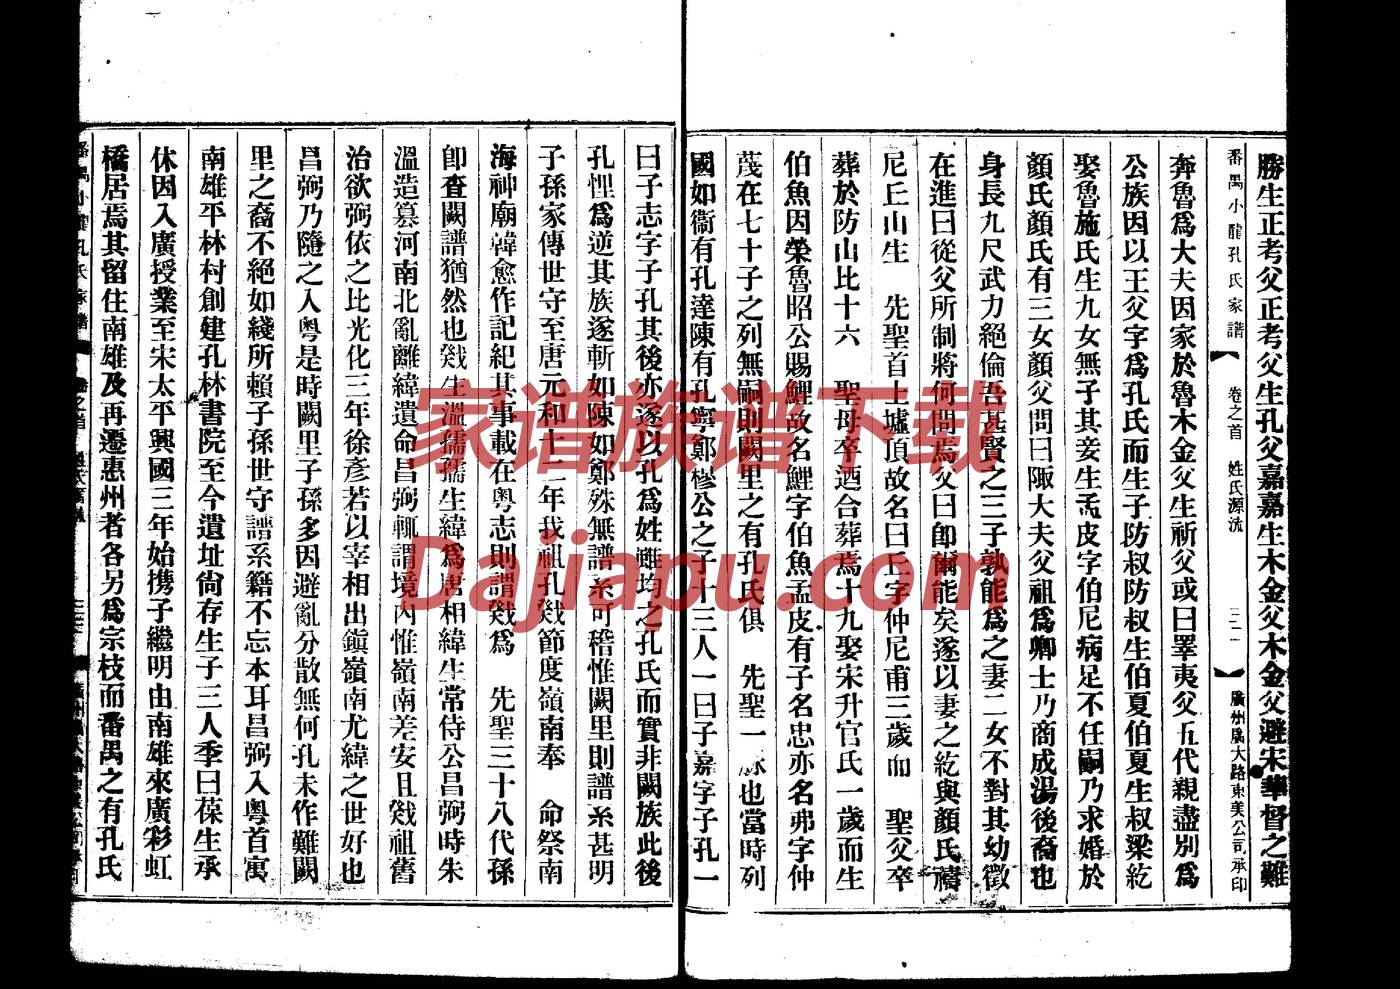 勝生正考父正考父生孔父嘉嘉生木金父木金父避宋華督之難
番禺小龍孔氏家譜 卷之首 姓氏源流 三二一 廣州廣大路東美公司承印
奔魯爲大夫因家於魯木金父生祈父或曰睪夷父五代親盡別爲
公族因以王父字爲孔氏而生子防叔防叔生伯夏伯夏生叔梁紇
娶魯施氏生九女無子其妾生孟皮字伯尼病足不任嗣乃求婚於
顏氏顏氏有三女顏父問曰陬大夫父祖爲卿士乃商成湯後裔也
身長九尺武力絕倫吾甚賢之三子孰能爲之妻二女不對其幼徵
在進曰從父所制將何問焉父曰卽爾能矣遂以妻之紇與顏氏禱
尼丘山生 先聖首上墟頂故名曰丘字仲尼甫三歲而 聖父卒
葬於防山比十六 聖母卒酒合葬焉十九娶宋升官氏一歲而生
伯魚因榮魯昭公賜鯉故名鯉字伯魚孟皮有子名忠亦名弗字仲
蔑在七十子之列無嗣則闕里之有孔氏俱 先聖一脉也當時列
國如衞有孔達陳有孔寧鄭穆公之子十三人一曰子嘉字子孔一
曰子志字子孔其後亦遂以孔爲姓雖均之孔氏而實非闕族此後
孔悝爲逆其族遂斬如陳如鄭殊無譜系可稽惟闕里則譜系甚明
子孫家傳世守至唐元和十二年我祖孔戣節度嶺南奉 命祭南
海神廟韓愈作記紀其事載在粵志則謂戣爲 先聖三十八代孫
卽查闕譜猶然也戣生溫孺孺生緯爲唐相緯生常侍公昌弼時朱
溫造篡河南北亂離緯遺命昌弼輒謂境內惟嶺南差安且戣祖舊
治欲弼依之比光化三年徐彥若以宰相出鎮嶺南尤緯之世好也
昌弼乃隨之入粵是時闕里子孫多因避亂分散無何孔未作難闕
里之裔不絕如綫所賴子孫世守譜系籍不忘本耳昌弼入粵首寓
南雄平林村創建孔林書院至今遺址尙存生子三人季曰葆生承
休因入廣授業至宋太平興國三年始携子繼明由南雄來廣彩虹
橋居焉其留住南雄及再遷惠州者各另爲宗枝而番禺之有孔氏
家谱族谱下载
Dajiapu.com